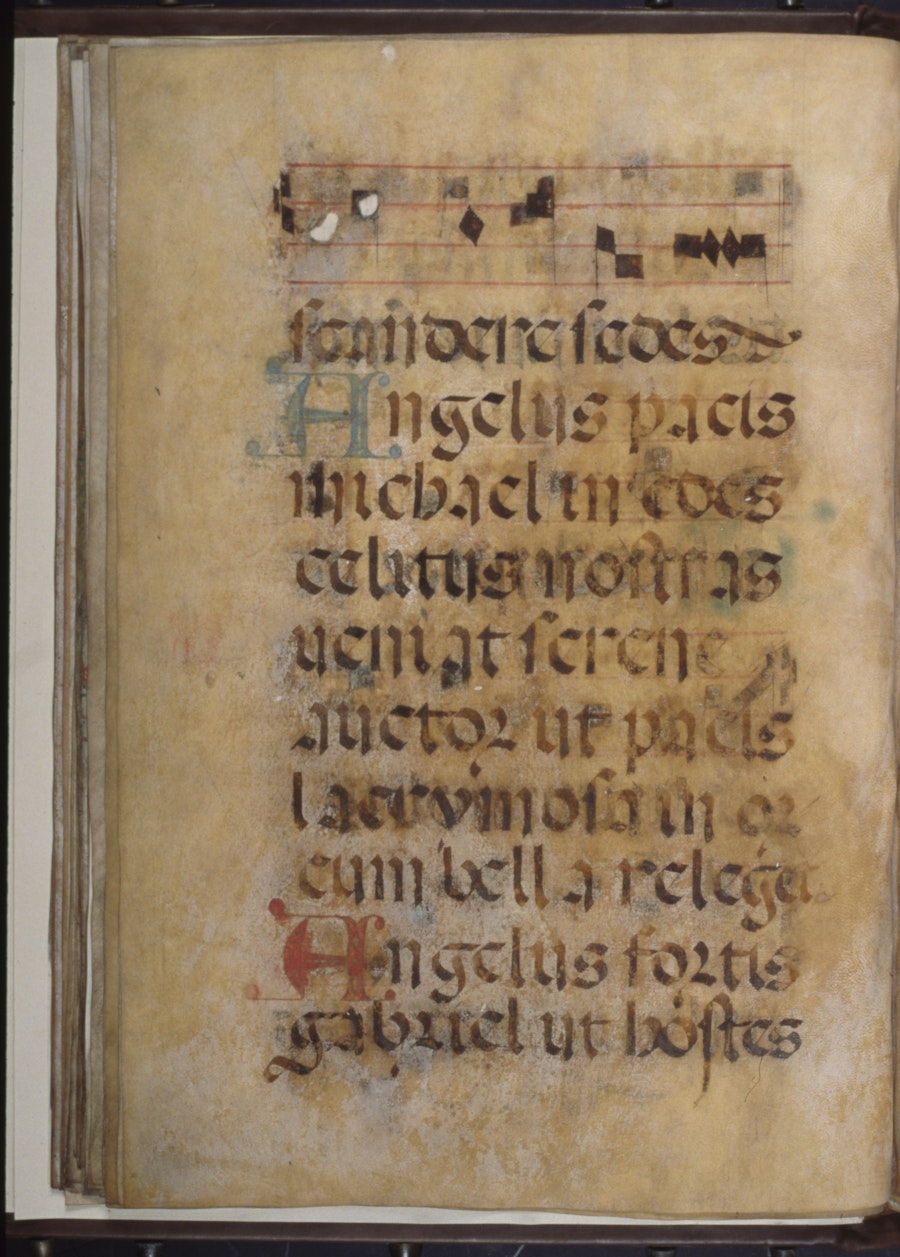 scandere sedes
Angelus pacis
michael in edes
celitus nostras
ueniat serene
auctor ut pacis
lacrymosa in or
cum bella releget
Angelus fortis
gabriel ut hostes